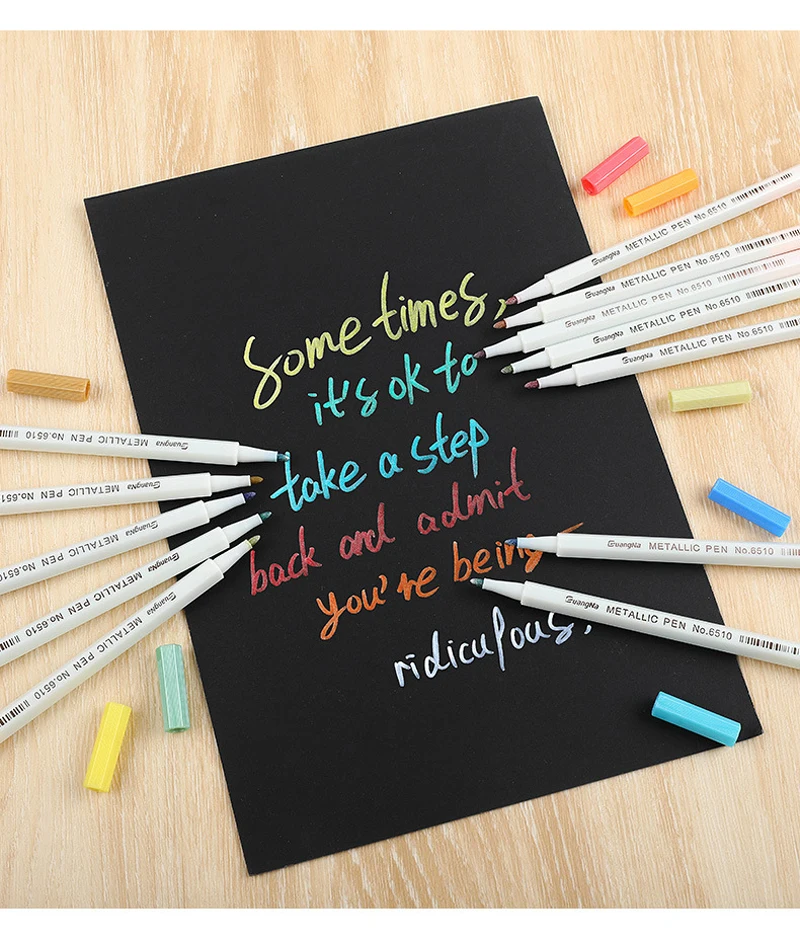 Sometimes,
it's ok to
take a step
back and admit
you're being
ridiculous,
GuangNa METALLIC PEN No.6510
GuangNa METALLIC PEN No.6510
GuangNa METALLIC PEN No.6510
GuangNa METALLIC PEN No.6510
GuangNa METALLIC PEN No.6510
GuangNa METALLIC PEN No.6510
GuangNa METALLIC PEN No.651
GuangNa METALLIC PEN No.6510
GuangNa METALLIC PEN No.6510
GuangNa METALLIC PEN No.6510
GuangNa METALLIC PEN No.6510
GuangNa METALLIC PEN No.6510